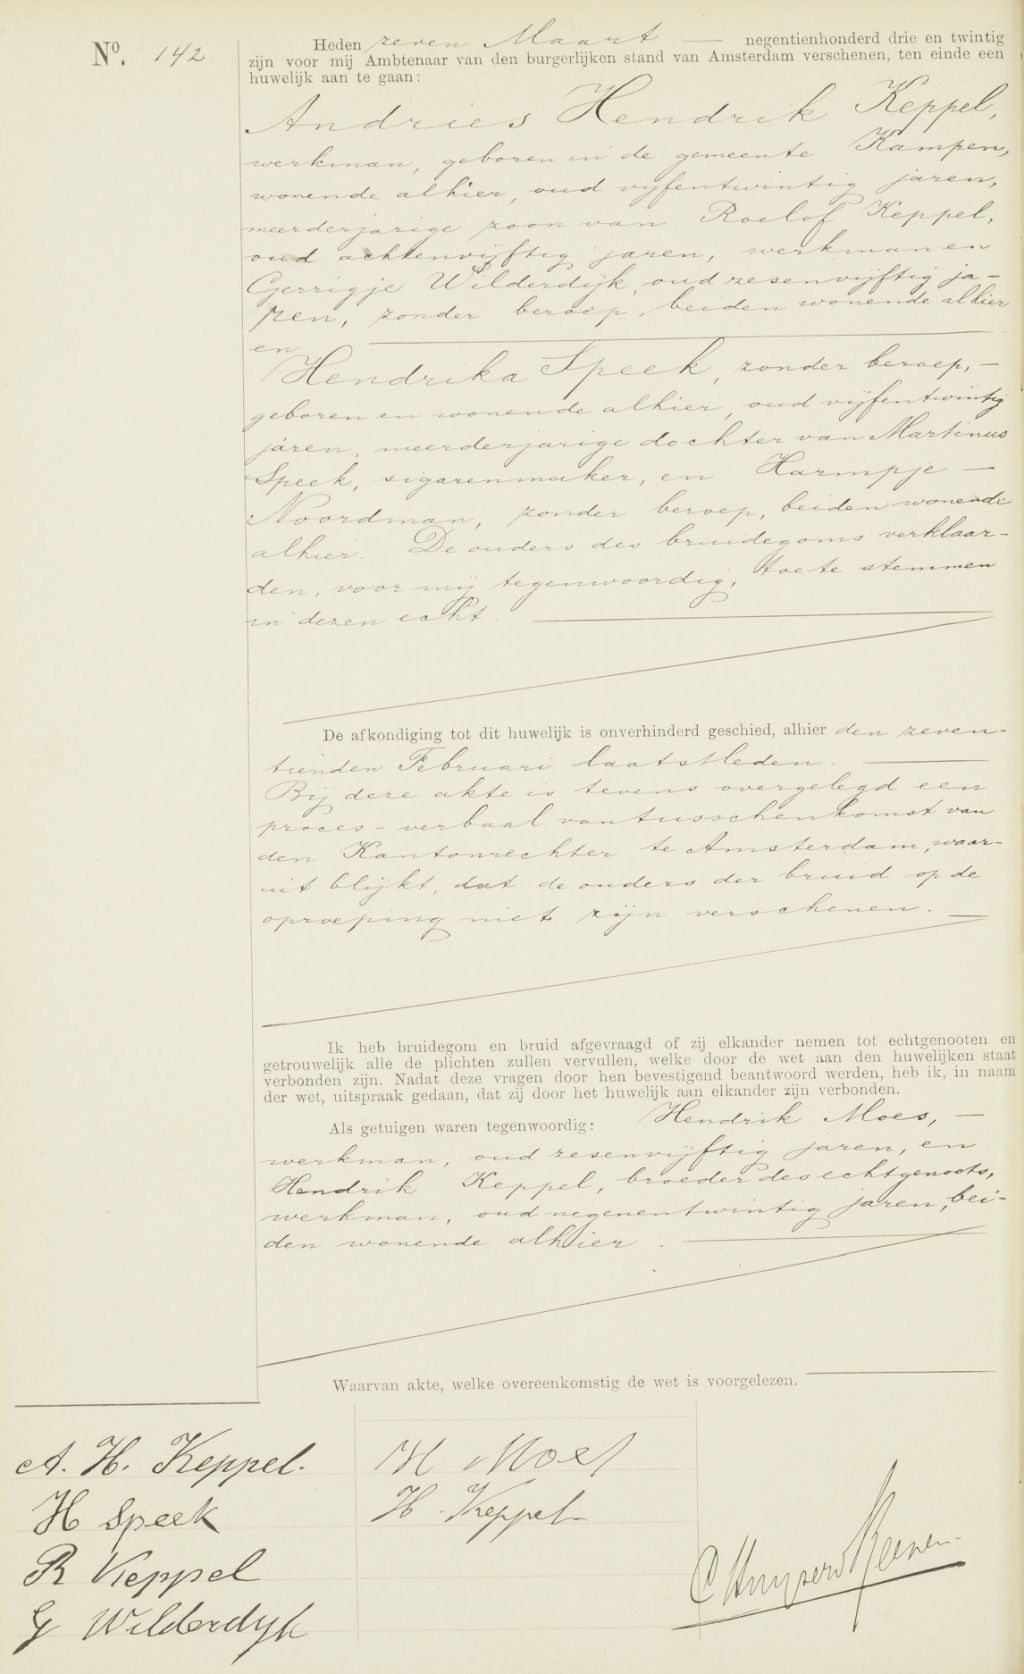 Nº. 142
Heden zeven Maart — negentienhonderd drie en twintig
zijn voor mij Ambtenaar van den burgerlijken stand van Amsterdam verschenen, ten einde een
huwelijk aan te gaan:
Andries Hendrik Keppel,
werkman, geboren in de gemeente Kampen,
wonende alhier, oud vijfentwintig jaren,
meerderjarige zoon van Roelof Keppel,
oud achtenvijftig jaren, werkman en
Gerrigje Wilderdijk, oud zesenvijftig ja-
ren, zonder beroep, beiden wonende alhier
en
Hendrika Speek, zonder beroep, —
geboren en wonende alhier, oud vijfentwintig
jaren, meerderjarige dochter van Martinus
Speek, sigarenmaker, en Harmpje —
Noordman, zonder beroep, beiden wonende
alhier. De ouders des bruidegoms verklaar-
den, voor mij tegenwoordig, toe te stemmen
in dezen echt.
De afkondiging tot dit huwelijk is onverhinderd geschied, alhier den zeven-
tienden Februari laatstleden.
Bij deze akte is tevens overgelegd een
proces-verbaal van tusschenkomst van
den Kantonrechter te Amsterdam, waar-
uit blijkt, dat de ouders der bruid op de
oproeping niet zijn verschenen. —
Ik heb bruidegom en bruid afgevraagd of zij elkander nemen tot echtgenooten en
getrouwelijk alle de plichten zullen vervullen, welke door de wet aan den huwelijken staat
verbonden zijn. Nadat deze vragen door hen bevestigend beantwoord werden, heb ik, in naam
der wet, uitspraak gedaan, dat zij door het huwelijk aan elkander zijn verbonden.
Als getuigen waren tegenwoordig: Hendrik Moes, —
werkman, oud zesenvijftig jaren, en
Hendrik Keppel, broeder des echtgenoots,
werkman, oud negenentwintig jaren, bei-
den wonende alhier.
Waarvan akte, welke overeenkomstig de wet is voorgelezen.
A. H. Keppel.
H Speek
R Keppel
G Wilderdyk
H Moes
H. Keppel